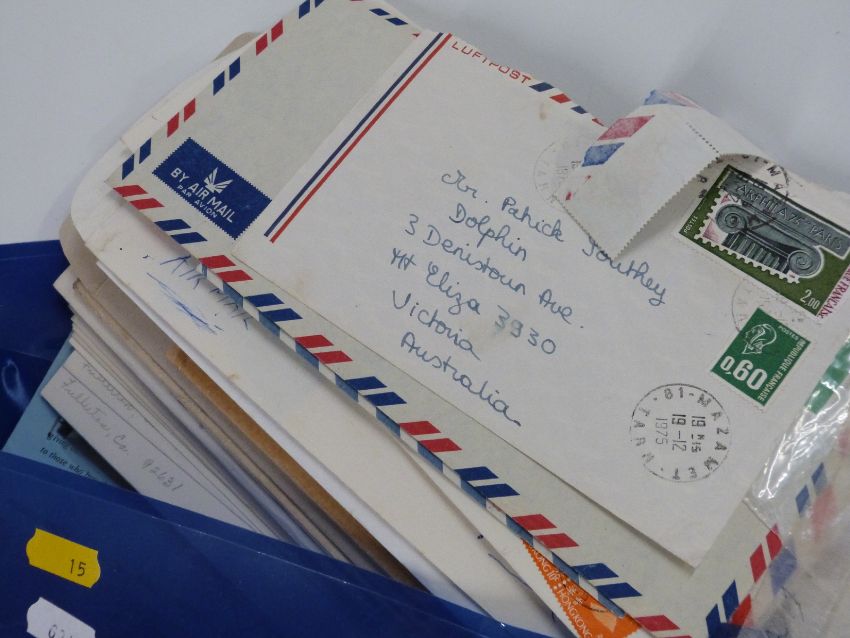 LUFTPOST
BY AIR MAIL
PAR AVION
AIR MAIL
Mr. Patrick Southey
Dolphin
3 Denistoun Ave.
Mt Eliza 3930
Victoria
Australia
ARPHILA 75 PARIS
POSTES
2,00
POSTES
0,60
REPUBLIQUE FRANÇAISE
81-MAZAMET
19 H15
19-12
1975
TARN
Fullerton, Ca. 92631
to those who
HONG KONG
15